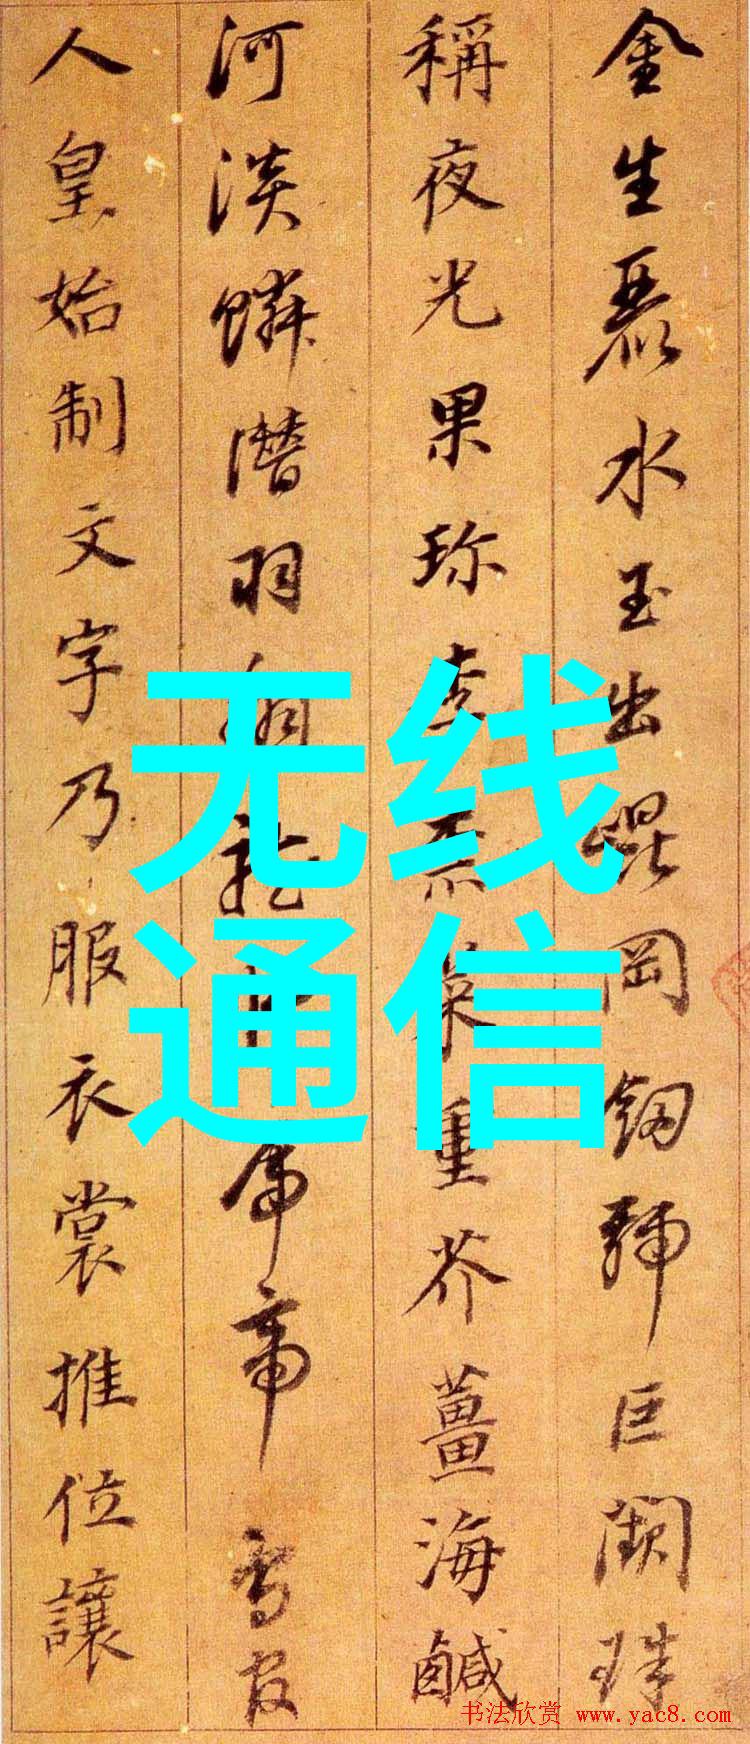 金生麗水玉出崑岡釼號巨闕珠
稱夜光果珍李柰菜重芥薑海鹹
河淡鱗潜羽翔龍帝鳥官
人皇始制文字乃服衣裳推位讓
无线
通信
书法欣赏 www.yac8.com